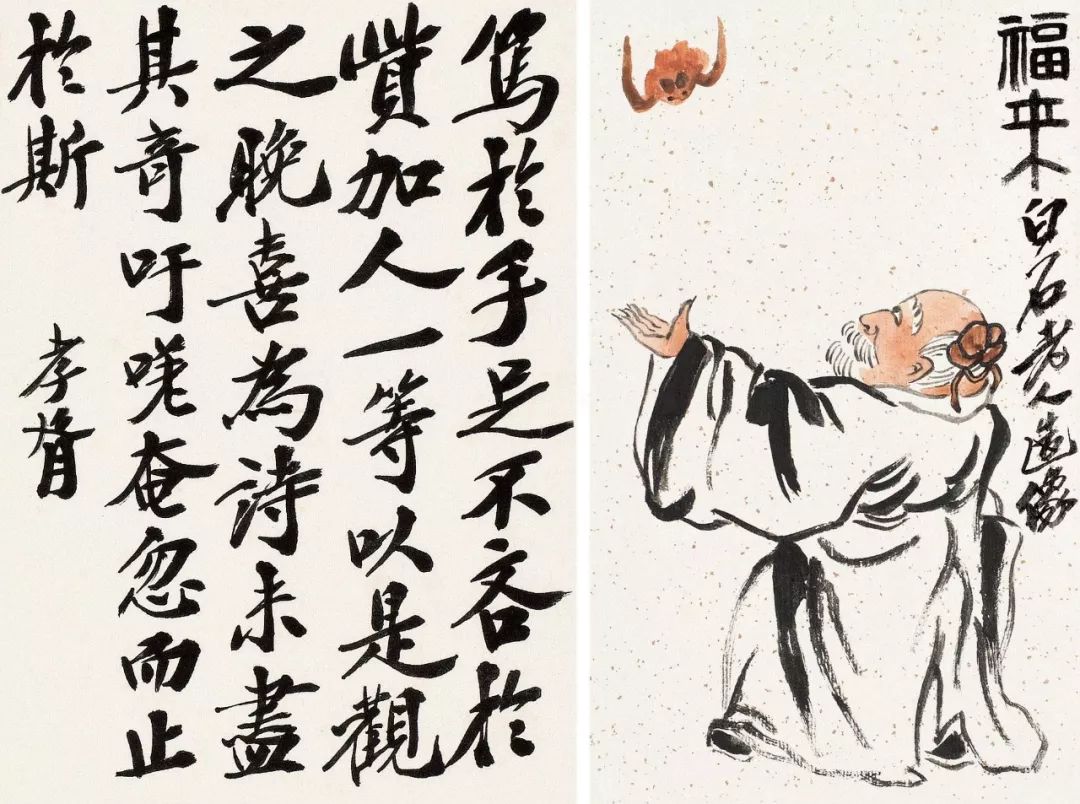 篤於手足不吝於
貲加人一等以是觀
之晚喜為詩未盡
其奇吁嗟奄忽而止
於斯
孝胥
福來 白石老人造像